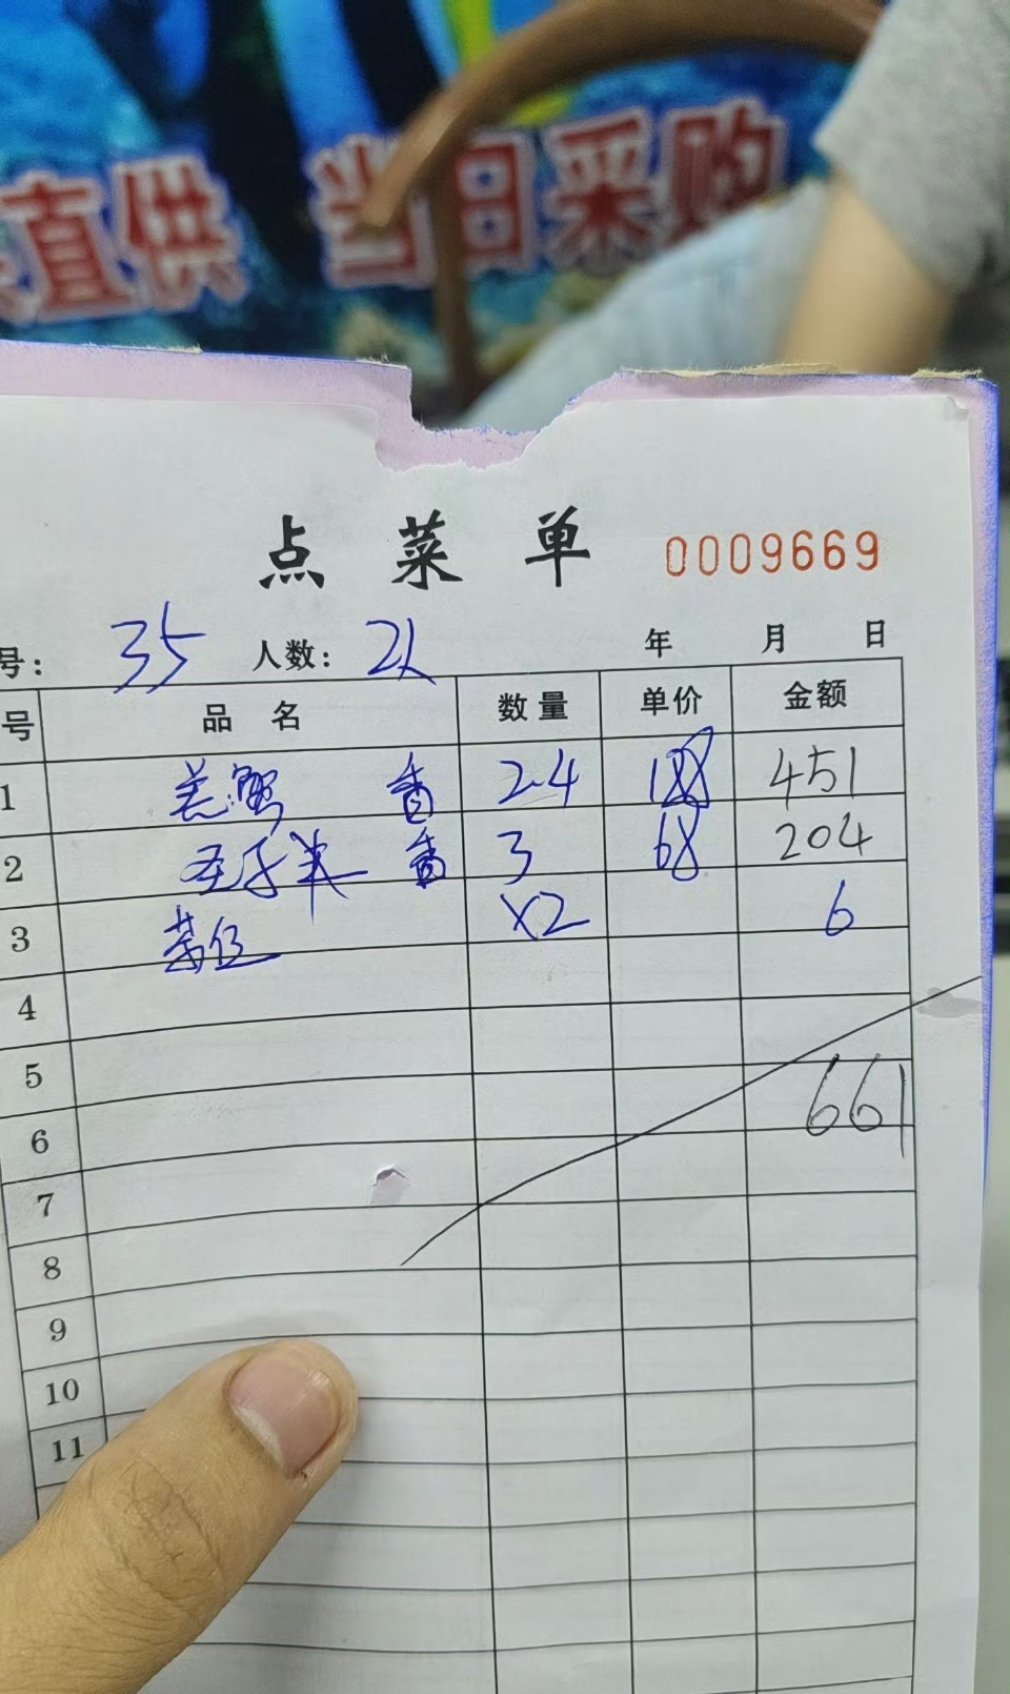 直供 当日采购
点菜单 0009669
号: 35 人数: 2人 年 月 日
号 品名 数量 单价 金额
1 羔蟹 香 2.4 188 451
2 香 3 68 204
3 茶位 x2 6
4
5
661
6
7
8
9
10
11